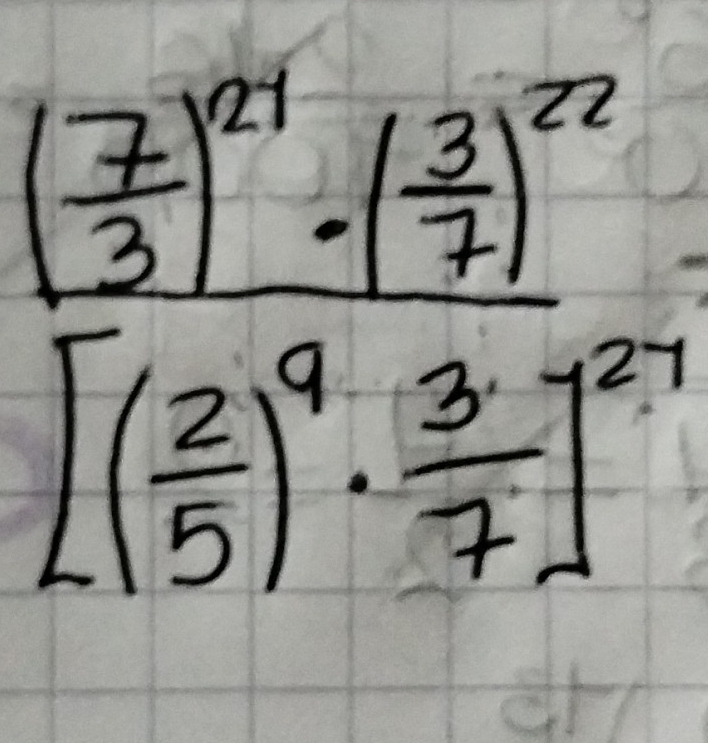 (7/3)^21 · (3/7)^22
[(2/5)^9 · 3/7]^21